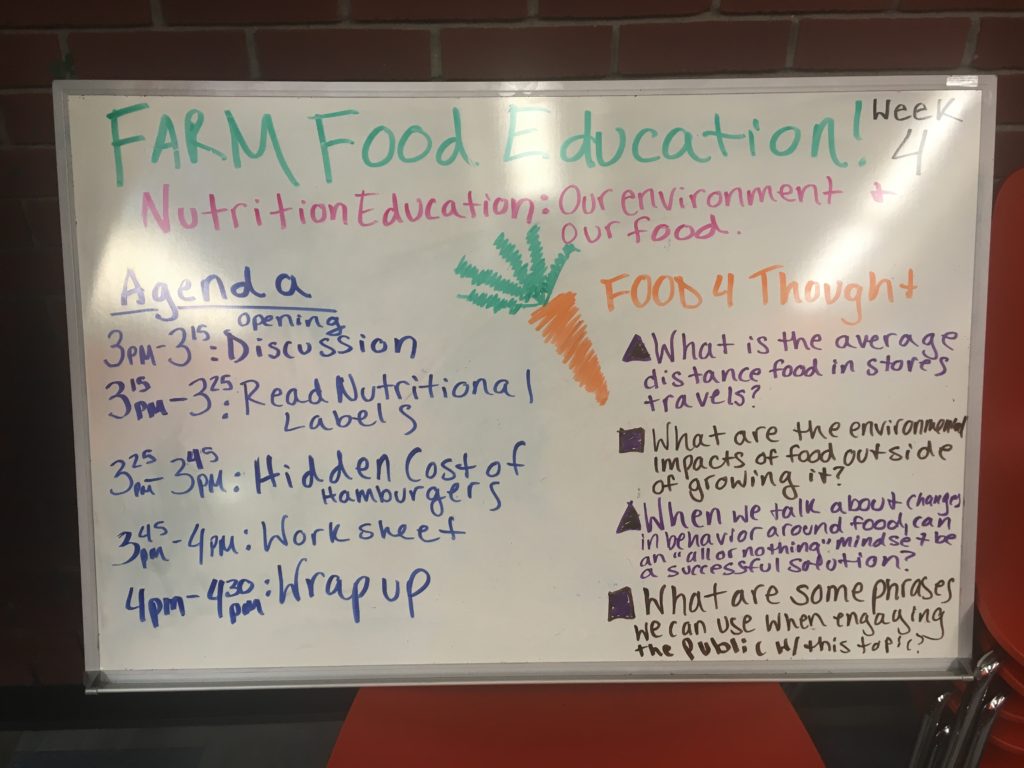 FARM Food Education!
Week
4
Nutrition Education: Our environment +
our food.
Agenda
opening
3PM-3 15: Discussion
3 15 PM - 3 25: Read Nutritional
Labels
3 25 PM - 3 45 PM: Hidden Cost of
Hamburgers
3 45 pm - 4PM: Worksheet
4pm - 4 30 pm: Wrap up
FOOD 4 Thought
What is the average
distance food in stores
travels?
What are the environmental
impacts of food outside
of growing it?
When we talk about changes
in behavior around food, can
an "all or nothing" mindset be
a successful solution?
What are some phrases
we can use when engaging
the public w/ this topic?